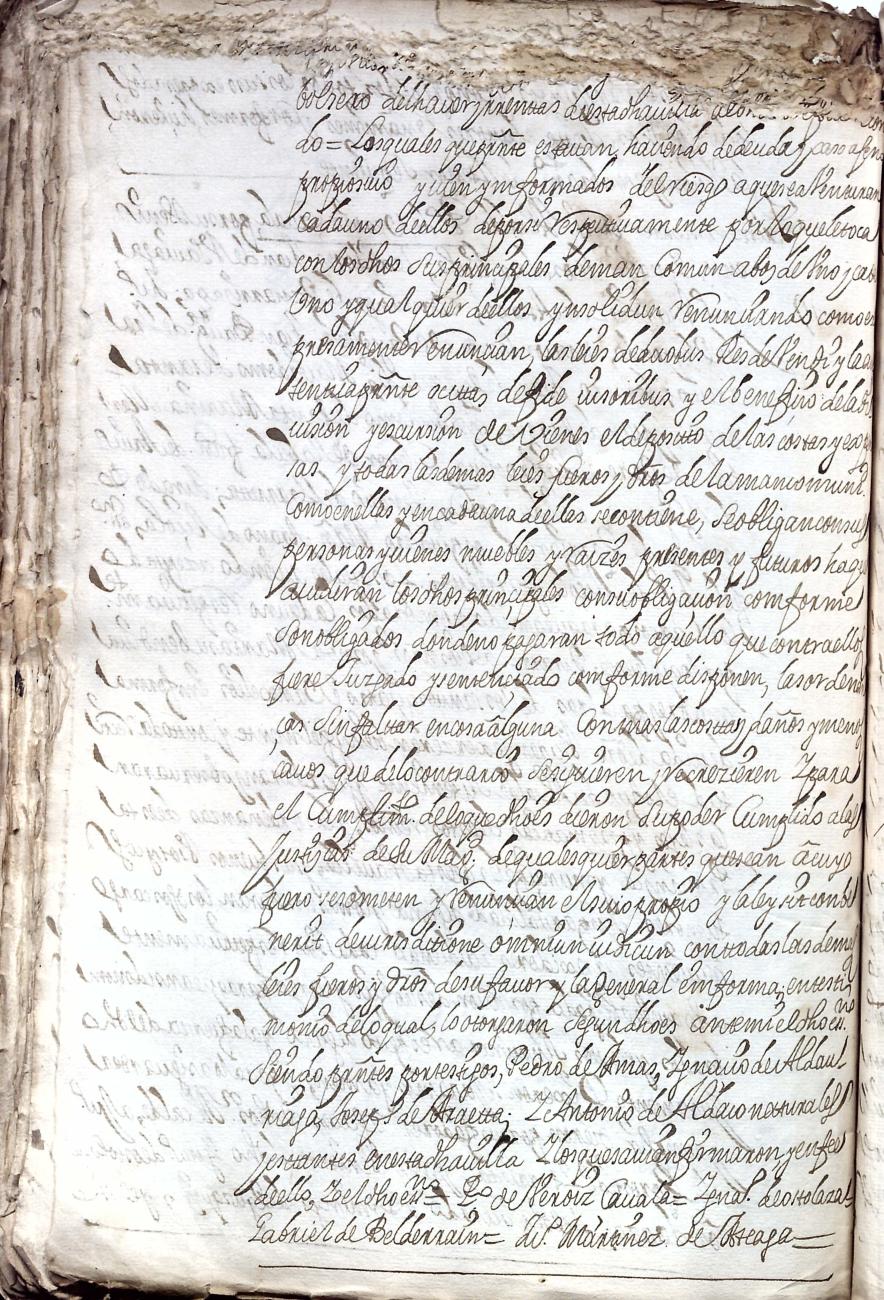 bolsero delhaver y rrentas deesta dha villa
do = Los quales que prñte estavan, haviendo de deuda y caso axeno
propio suio y vien ymformados del riesgo aquese aVenturan
cada uno deellos deporsi Respetivamente por loqueletoca
con los dhos sus prinzipales deman Comun abos de Uno y cada
Uno y qual quier deellos ynsolidun Renunciando como es
presamente Renuncian, las leies de duobus Res de Vendi y la au
tentica prñte occitta de fide iusoribus y el benefizio de la di
uision y escursion de Vienes el deposito de las costas y espen
sas y todas las demas leies fueros y dros de la mancomunid.
Como enellas y encada una deellas se contiene, Se obligan consus
personas y uienes muebles y Raizes presentes y futuros haque
acudiran los dhos prinzipales consu obligazion comforme
Son obligados, donde no pagaran todo aquello que contra ellos
fuere Juzgado y sentenziado comforme disponen, las ordenan
ças Sin faltar en cosa alguna Con mas las costas y daños y menos
cauos que delo contrario Se siguieren y Recrezieren Y para
el Cumplim.to delo que dho es dieron su poder Cumplido a las
Justizias de Su Mag.d de quales quier partes que sean a cuyo
fuero se someten y Renuncian el suio propio y la ley sit conbe
nerit de iurisditione omniun iudicun con todas las demas
leies fueros y dros de su favor y la General em forma, en testi
monio delo qual, lo otorgaron Segun dho es ante mi el dho ess.no
Siendo prñtes por testigos, Pedro de Armas, Ygnacio de Aldaul
riaga, Joseph de Araetta; Y Antonio de Aldaco naturales
y estantes en esta dha villa Y los que savian firmaron, y en fee
deello, Yo el dho ess.no = P.o de Veroiz Cavala = Ygna.o de ostolaza =
Gabriel de Belderrain = Martinez de Arteaga =